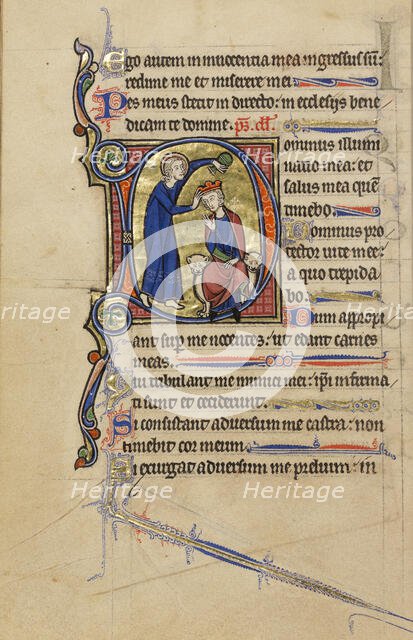 Ego autem in innocencia mea ingressus sū:
redime me et miserere mei.
Pes meus stetit in directo: in ecclesiis bene
dicam te domine. ps. dd.
Dominus illumi
natio mea: et
salus mea quē
timebo.
Dominus pro
tector uite mee:
a quo trepida
bo.
Dum appropi
ant sup me nocentes: ut edant carnes
meas.
Qui tribulant me inimici mei: ipi infirma
ti sunt et ceciderunt.
Si consistant aduersum me castra: non
timebit cor meum.
Si exurgat aduersum me prelium: in
Heritage
Heritage
Heritage
Heritage
Heritage
Heritage
Heritage
Heritage
Heritage